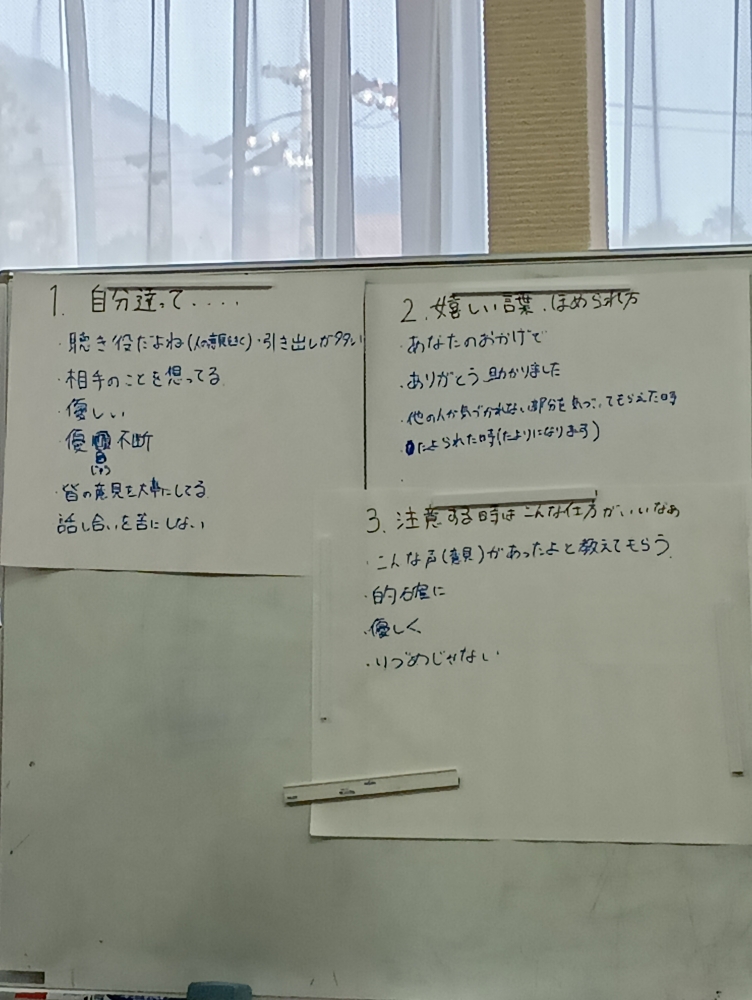 1. 自分達って....
・聴き役だよね(人の意見をきく)・引き出しが多い
・相手のことを想ってる
・優しい
・優 不断
じゅう
・皆の意見を大事にしてる
話し合いを苦にしない
2. 嬉しい言葉、ほめられ方
・あなたのおかげで
・ありがとう 助かりました
・他の人が気づかれない部分を気づいてもらえた時
・たよられた時(たよりになります)
・
3. 注意する時は こんな仕方がいいなぁ
・こんな声(意見)があったよと教えてもらう
・的確に
・優しく
・りづめじゃない